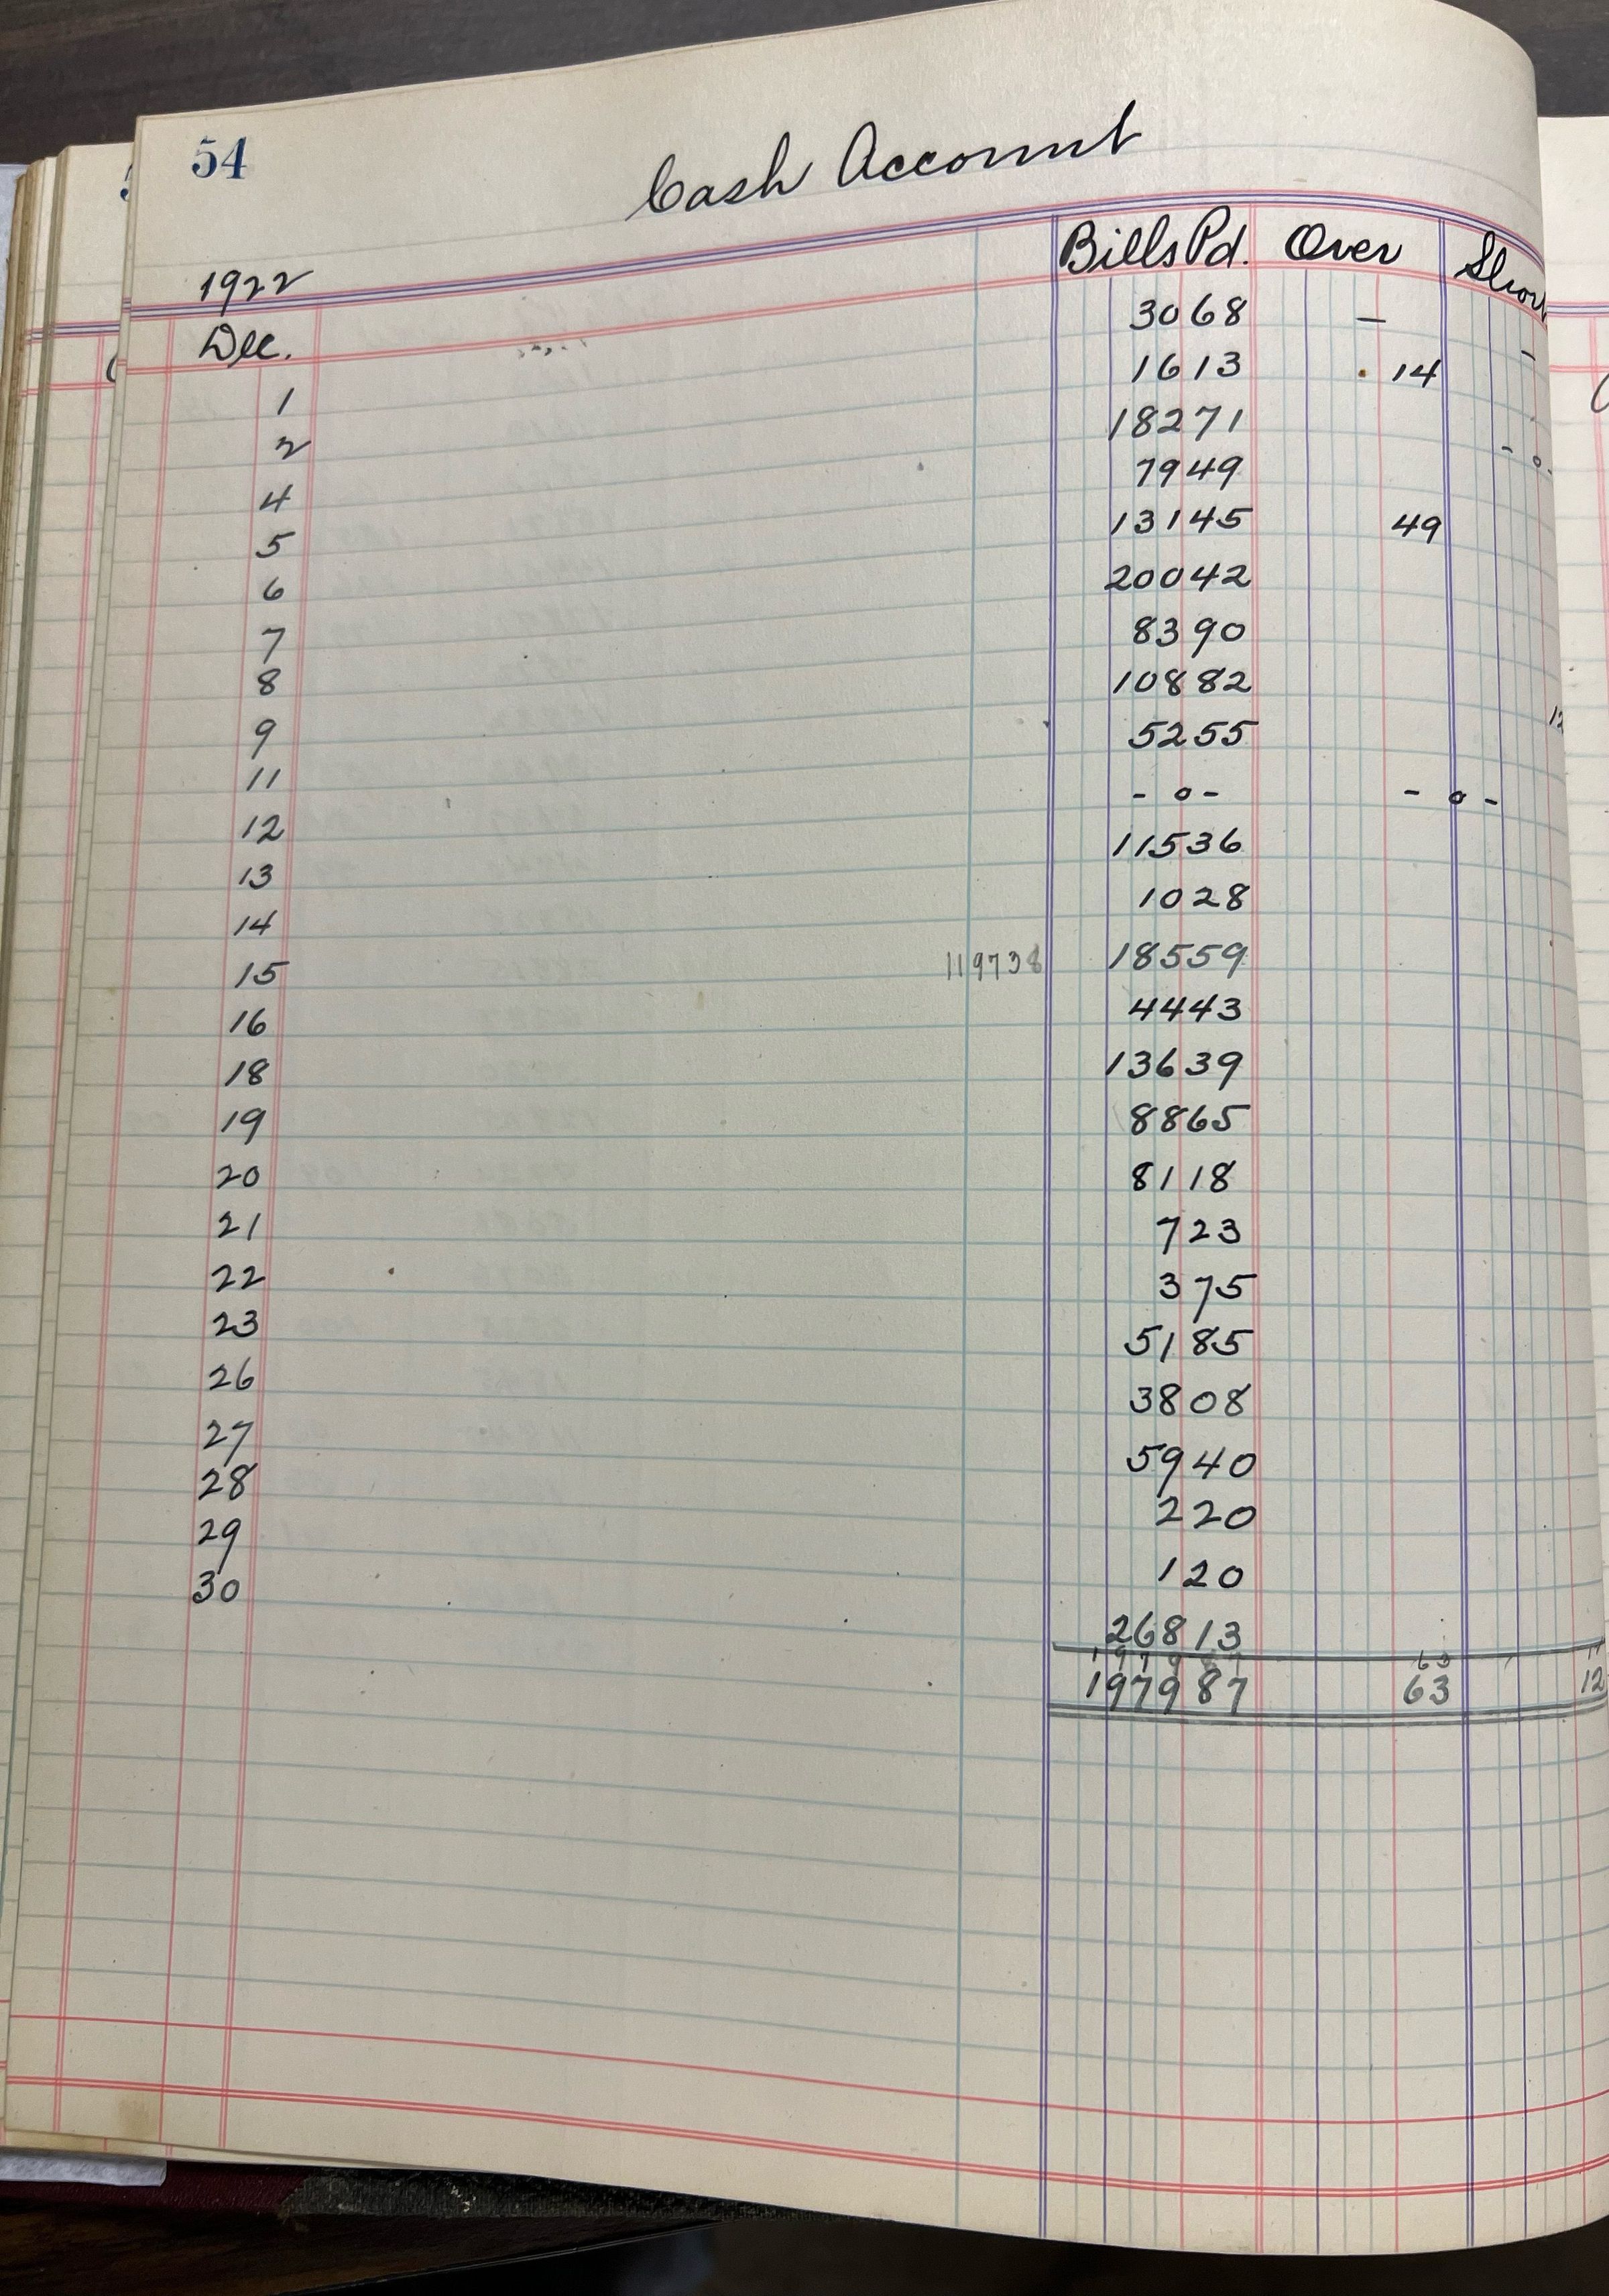 54
Cash Account
1922 Bills Pd. Over Short
Dec.
1 3068 — -
2 1613 . 14
4 18271 - o -
5 7949
6 13145 49
7 20042
8 8390
9 10882 12
11 5255
12 - o - - o -
13 11536
14 1028
15 119738 18559
16 4443
18 13639
19 8865
20 8118
21 723
22 375
23 5185
26 3808
27 5940
28 220
29 120
30 26813
197987 63
197987 63 12